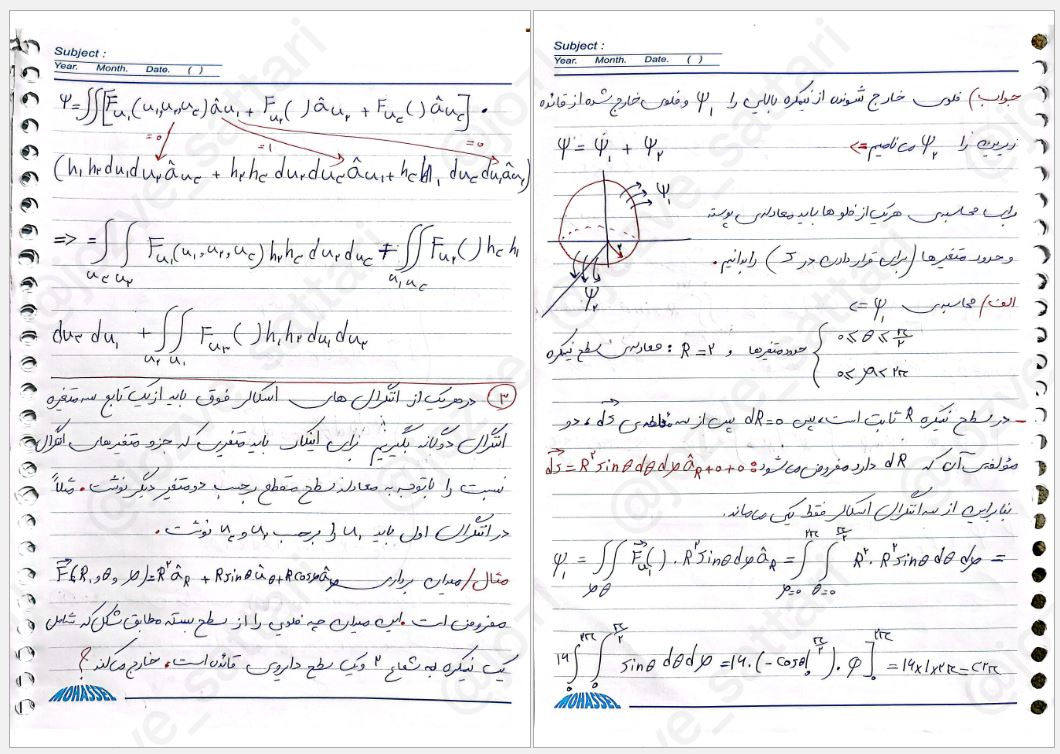 Subject :
Year. Month. Date. ( )
Ψ = ∬[F_u₁(u₁,u₂,u₃) â_u₁ + F_u₂( ) â_u₂ + F_u₃( ) â_u₃] .
=۰ =۱ =۰
(h₁h₂du₁du₂ â_u₃ + h₂h₃du₂du₃ â_u₁ + h₃h₁ du₃du₁ â_u₂)
=> = ∫∫ F_u₁(u₁,u₂,u₃) h₂h₃ du₂du₃ + ∬ F_u₂( ) h₃h₁
u₃ u₂ u₁u₃
du₃ du₁ + ∬ F_u₃( ) h₁h₂ du₁du₂
u₂ u₁
۳ در هریک از انتگرال های اسکالر فوق باید از یک تابع سه متغیره
انتگرال دوگانه بگیریم برای اینکار باید متغیری که جزو متغیرهای انتگرال
نیست را باتوجه به معادله سطح متقطع برحسب دو متغیر دیگر نوشت. مثلاً
در انتگرال اول باید u₁ را برحسب u₂ و u₃ نوشت.
مثال/ میدان برداری F(R,θ,φ)=R²â_R + Rsinθâ_θ+Rcosφâ_φ
مفروض است. این میدان چه فلویی را از سطح بسته مطابق شکل که شامل
یک نیمکره به شعاع ۲ و یک سطح دایروی قائده است، خارج می کند؟
MOHASSEL
Subject :
Year. Month. Date. ( )
جواب) فلوی خارج شونده از نیمکره بالایی را Ψ₁ و فلوی خارج شده از قائده
زیرین را Ψ₂ می نامیم => Ψ = Ψ₁ + Ψ₂
Ψ₁
برای محاسبه ی هریک از فلوها باید معادله ی پوسته
۲
و حدود متغیرها (برای قرار دادن در ∫) را بدانیم.
Ψ₂
الف/ محاسبه ی Ψ₁ =>
معادله ی سطح نیمکره : R=۲ و حدود متغیرها { ۰≤θ≤π/۲
۰≤φ≤۲π
- در سطح نیمکره R ثابت است، پس dR=۰ پس از سه مؤلفه ی ds، دو
مؤلفه ی آن که dR دارد مفروض می شود: ds=R²sinθdθdφâ_R+۰+۰
بنابراین از سه انتگرال اسکالر فقط یکی می ماند.
Ψ₁ = ∬ F_u₁( ) . R²sinθdφâ_R = ∫_{φ=۰}^{۲π} ∫_{θ=۰}^{π/۲} R². R²sinθdθdφ =
φ θ
۱۶ ∫_۰^{۲π} ∫_۰^{π/۲} sinθdθdφ = ۱۶.(-cosθ|_۰^{π/۲}). φ]_۰^{۲π} = ۱۶×۱×۲π = ۳۲π
MOHASSEL